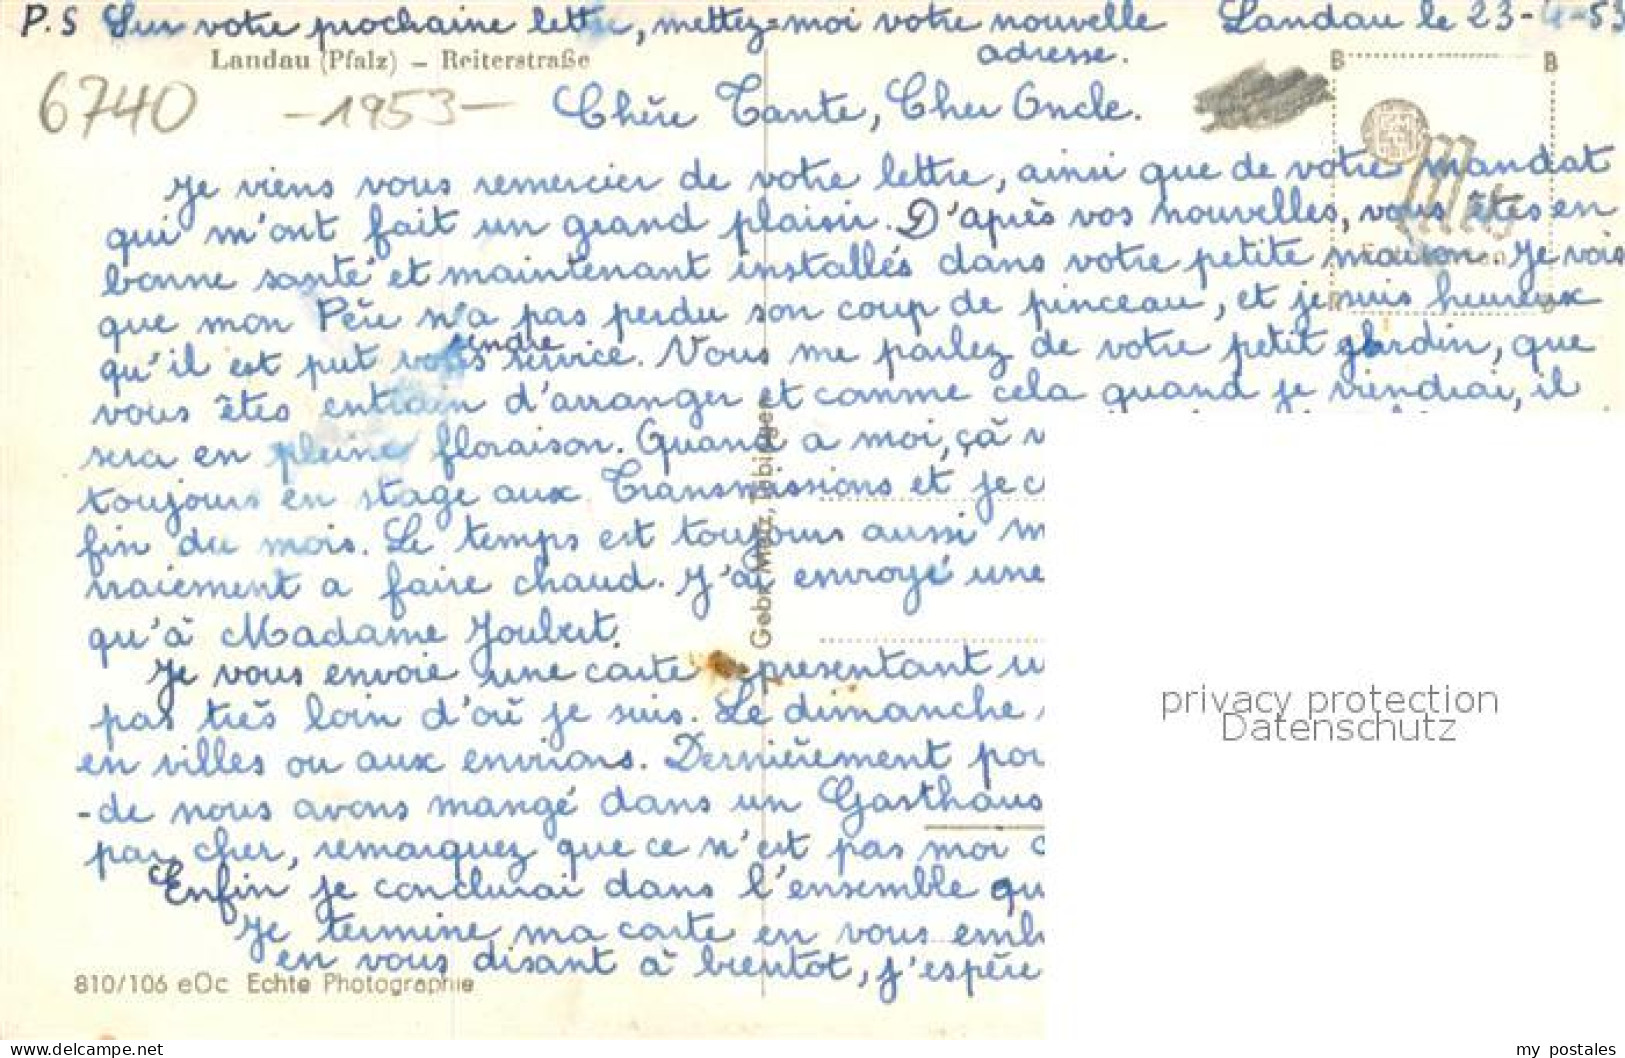 P.S Sur votre prochaine lettre, mettez=moi votre nouvelle adresse.
Landau le 23-4-53
Landau (Pfalz) – Reiterstraße
6740
-1953-
Chère Tante, Cher Oncle.
Je viens vous remercier de votre lettre, ainsi que de votre mandat
qui m'ont fait un grand plaisir. D'après vos nouvelles, vous êtes en
bonne santé et maintenant installés dans votre petite maison. Je vois
que mon Père n'a pas perdu son coup de pinceau, et je suis heureux
qu'il est put vous rendre service. Vous me parlez de votre petit jardin, que
vous êtes entrain d'arranger et comme cela quand je viendrai, il
sera en pleine floraison. Quand a moi, çà v
toujours en stage aux Transmissions et je c
fin du mois. Le temps est toujours aussi m
vraiement a faire chaud. J'ai envoyé une
qu'à Madame Joubert.
Je vous envoie une carte presentant u
pas très loin d'où je suis. Le dimanche
en villes ou aux environs. Dernièrement pou
-de nous avons mangé dans un Gasthaus
pas cher, remarquez que ce n'est pas moi
Enfin je conclurai dans l'ensemble qu
Je termine ma carte en vous emb
en vous disant à bientot, j'espère
810/106 eOc Echte Photographie
Gebr. Metz, Tübingen
Metz
B
B
privacy protection
Datenschutz
www.delcampe.net
my_postales